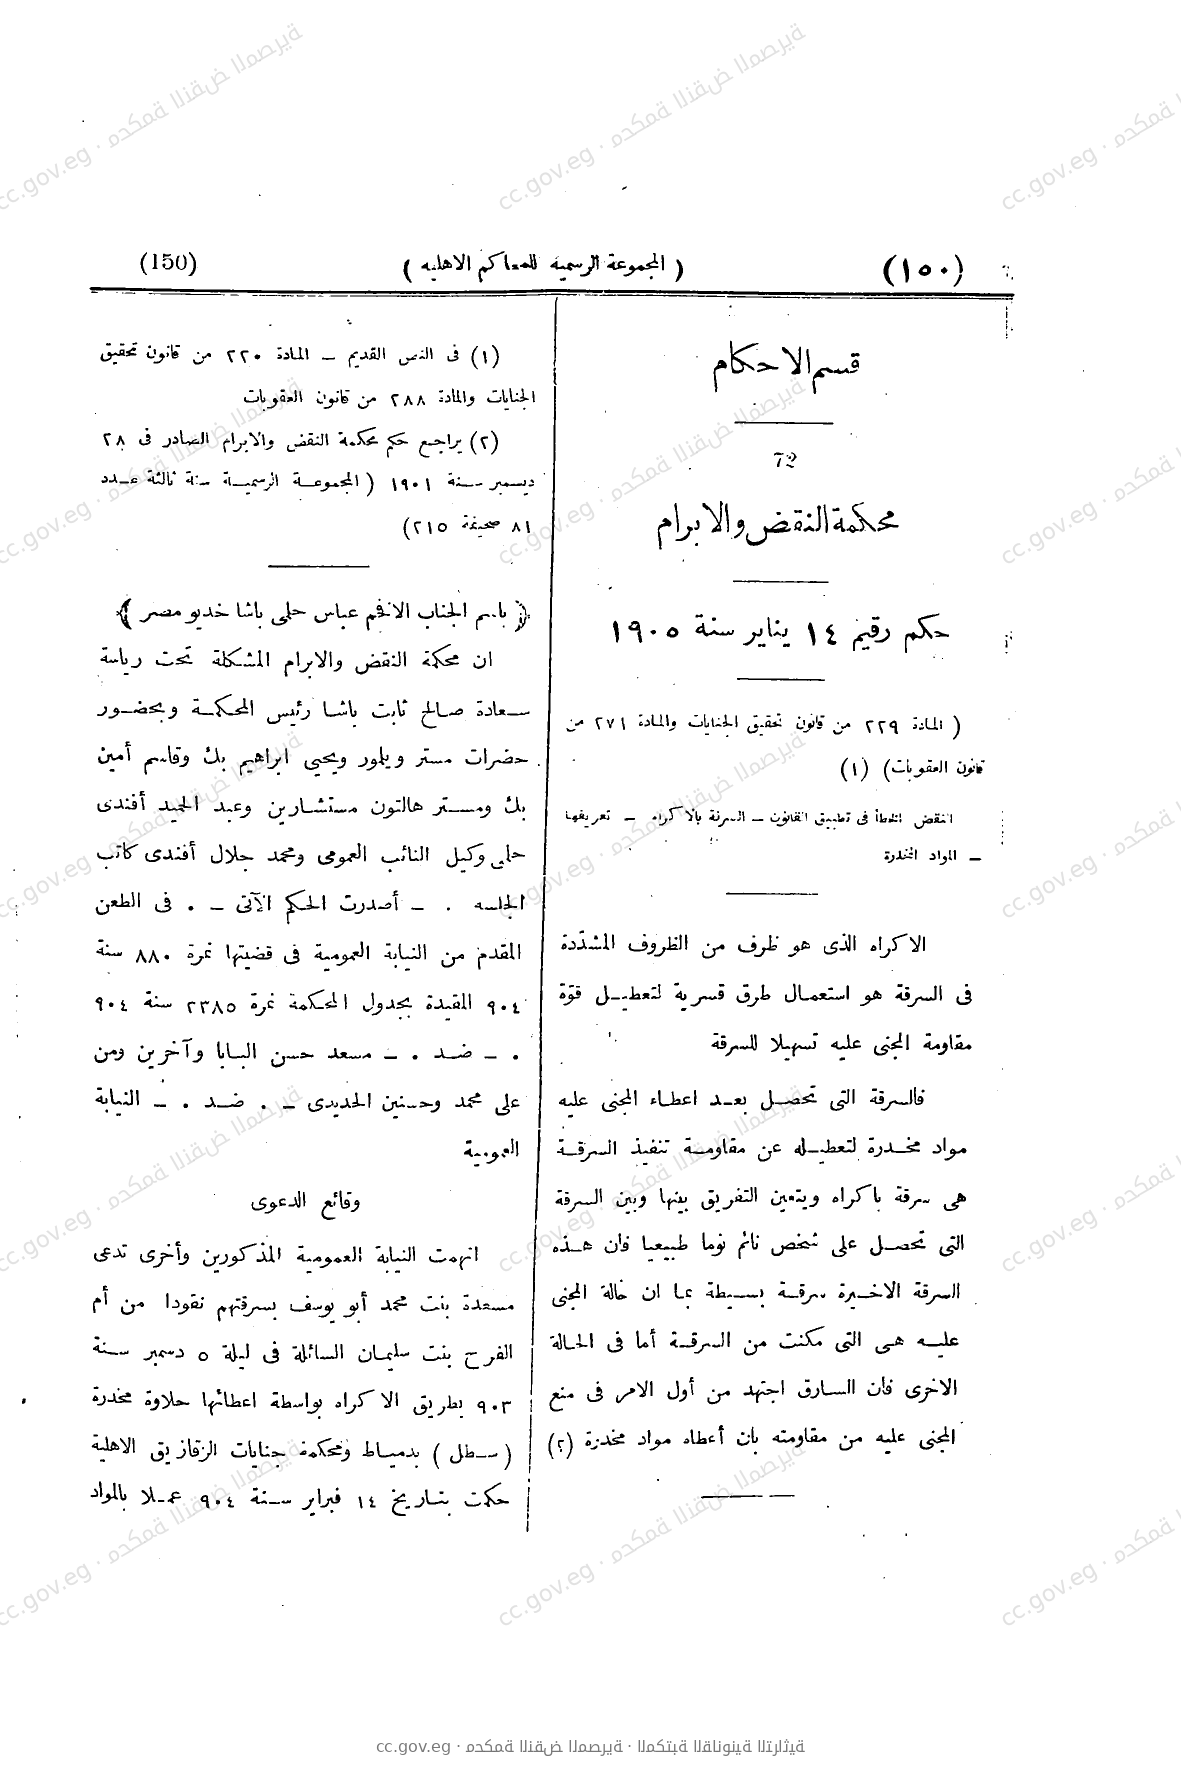 (١٥٠)
( المجموعة الرسمية للمحاكم الاهلية )
(150)
قسم الاحكام
72
محكمة النقض والابرام
حكم رقيم ١٤ يناير سنة ١٩٠٥
( المادة ٢٢٩ من قانون تحقيق الجنايات والمادة ٢٧١ من
قانون العقوبات) (١)
النقض الخطأ فى تطبيق القانون ــ السرقة بالاكراه ــ تعريفها
ــ المواد المخدرة
الاكراه الذى هو ظرف من الظروف المشدّدة
فى السرقة هو استعمال طرق قسرية لتعطيل قوّة
مقاومة المجنى عليه تسهيلا للسرقة
فالسرقة التى تحصل بعد اعطاء المجنى عليه
مواد مخدرة لتعطيله عن مقاومة تنفيذ السرقة
هى سرقة باكراه ويتعين التفريق بينها وبين السرقة
التى تحصل على شخص نائم نوما طبيعيا فان هذه
السرقة الاخيرة سرقة بسيطة بما ان حالة المجنى
عليه هى التى مكنت من السرقة أما فى الحالة
الاخرى فان السارق اجتهد من أول الامر فى منع
المجنى عليه من مقاومته بان أعطاه مواد مخدرة (٢)
(١) فى النص القديم ــ المادة ٢٢٠ من قانون تحقيق
الجنايات والمادة ٢٨٨ من قانون العقوبات
(٢) يراجع حكم محكمة النقض والابرام الصادر فى ٢٨
ديسمبر سنة ١٩٠١ ( المجموعة الرسمية سنة ثالثة عدد
٨١ صحيفة ٢١٥)
﴿ باسم الجناب الافخم عباس حلمى باشا خديو مصر ﴾
ان محكمة النقض والابرام المشكلة تحت رياسة
سعادة صالح ثابت باشا رئيس المحكمة وبحضور
حضرات مستر ويلمور ويحيى ابراهيم بك وقاسم أمين
بك ومستر هالتون مستشارين وعبد الحميد أفندى
حلمى وكيل النائب العمومى ومحمد جلال أفندى كاتب
الجلسه . ــ أصدرت الحكم الآتى ــ . فى الطعن
المقدم من النيابة العمومية فى قضيتها نمرة ٨٨٠ سنة
٩٠٤ المقيدة بجدول المحكمة نمرة ٢٣٨٥ سنة ٩٠٤
. ــ ضد . ــ مسعد حسن البابا وآخرين ومن
على محمد وحسنين الحديدى ــ . ضد . ــ النيابة
العمومية
وقائع الدعوى
اتهمت النيابة العمومية المذكورين وأخرى تدعى
مسعدة بنت محمد أبو يوسف بسرقتهم نقودا من أم
الفرح بنت سليمان السائلة فى ليلة ٥ دسمبر سنة
٩٠٣ بطريق الاكراه بواسطة اعطائها حلاوة مخدرة
( سطل ) بدمياط ومحكمة جنايات الزقازيق الاهلية
حكمت بتاريخ ١٤ فبراير سنة ٩٠٤ عملا بالمواد
cc.gov.eg · محكمة النقض المصرية · المكتبة القانونية التراثية